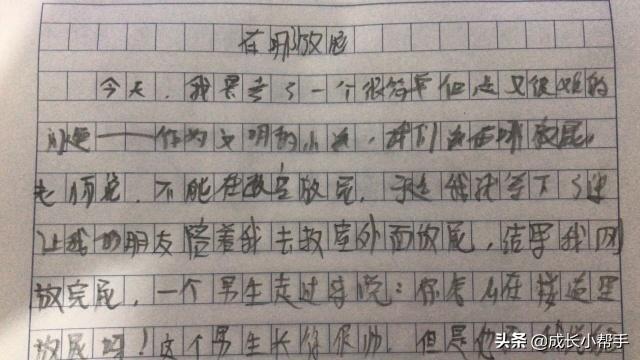 在哪放尿
今天,我思考了一个很简单但是又很难的
问题——作为文明的小孩,我们应在哪放尿,
老师说,不能在教室放尿,于是我就等下了课
让我的朋友陪着我去教室外面放尿,结果我刚
放完尿,一个男生走过来说:你怎么在楼道里
放尿呀!这个男生长得很帅,但是他
头条 @成长小帮手